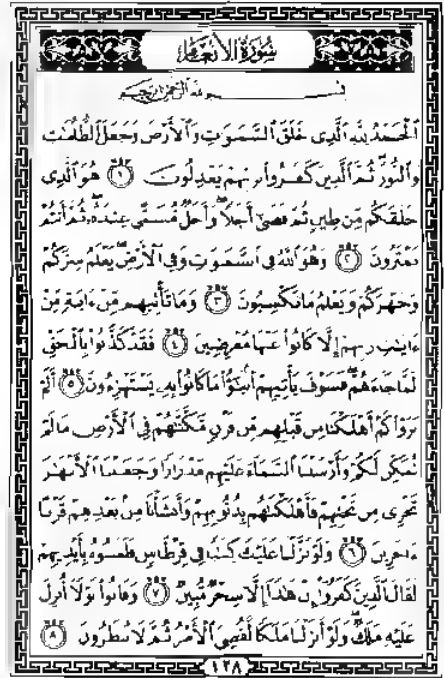 سُورَةُ الأَنْعَامِ
بِسْمِ اللَّهِ الرَّحْمَٰنِ الرَّحِيمِ
ٱلْحَمْدُ لِلَّهِ ٱلَّذِى خَلَقَ ٱلسَّمَٰوَٰتِ وَٱلْأَرْضَ وَجَعَلَ ٱلظُّلُمَٰتِ
وَٱلنُّورَ ثُمَّ ٱلَّذِينَ كَفَرُوا۟ بِرَبِّهِمْ يَعْدِلُونَ ١ هُوَ ٱلَّذِى
خَلَقَكُم مِّن طِينٍ ثُمَّ قَضَىٰٓ أَجَلًا وَأَجَلٌ مُّسَمًّى عِندَهُۥ ثُمَّ أَنتُمْ
تَمْتَرُونَ ٢ وَهُوَ ٱللَّهُ فِى ٱلسَّمَٰوَٰتِ وَفِى ٱلْأَرْضِ يَعْلَمُ سِرَّكُمْ
وَجَهْرَكُمْ وَيَعْلَمُ مَا تَكْسِبُونَ ٣ وَمَا تَأْتِيهِم مِّنْ ءَايَةٍ مِّنْ
ءَايَٰتِ رَبِّهِمْ إِلَّا كَانُوا۟ عَنْهَا مُعْرِضِينَ ٤ فَقَدْ كَذَّبُوا۟ بِٱلْحَقِّ
لَمَّا جَآءَهُمْ فَسَوْفَ يَأْتِيهِمْ أَنۢبَٰٓؤُا۟ مَا كَانُوا۟ بِهِۦ يَسْتَهْزِءُونَ ٥ أَلَمْ
يَرَوْا۟ كَمْ أَهْلَكْنَا مِن قَبْلِهِم مِّن قَرْنٍ مَّكَّنَّٰهُمْ فِى ٱلْأَرْضِ مَا لَمْ
نُمَكِّن لَّكُمْ وَأَرْسَلْنَا ٱلسَّمَآءَ عَلَيْهِم مِّدْرَارًا وَجَعَلْنَا ٱلْأَنْهَٰرَ
تَجْرِى مِن تَحْتِهِمْ فَأَهْلَكْنَٰهُم بِذُنُوبِهِمْ وَأَنشَأْنَا مِنۢ بَعْدِهِمْ قَرْنًا
ءَاخَرِينَ ٦ وَلَوْ نَزَّلْنَا عَلَيْكَ كِتَٰبًا فِى قِرْطَاسٍ فَلَمَسُوهُ بِأَيْدِيهِمْ
لَقَالَ ٱلَّذِينَ كَفَرُوٓا۟ إِنْ هَٰذَآ إِلَّا سِحْرٌ مُّبِينٌ ٧ وَقَالُوا۟ لَوْلَآ أُنزِلَ
عَلَيْهِ مَلَكٌ وَلَوْ أَنزَلْنَا مَلَكًا لَّقُضِىَ ٱلْأَمْرُ ثُمَّ لَا يُنظَرُونَ ٨
١٢٨